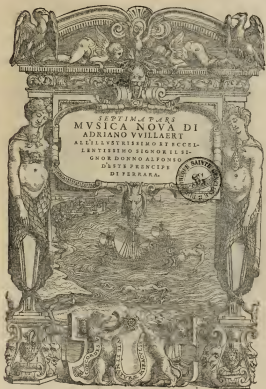 SEPTIMA PARS
MVSICA NOVA DI
ADRIANO VVILLAERT
ALL'ILLVSTRISSIMO ET ECCEL-
LENTISSIMO SIGNOR IL SI-
GNOR DONNO ALFONSO
D'ESTE PRENCIPE
DI FERRARA.
SAINTE